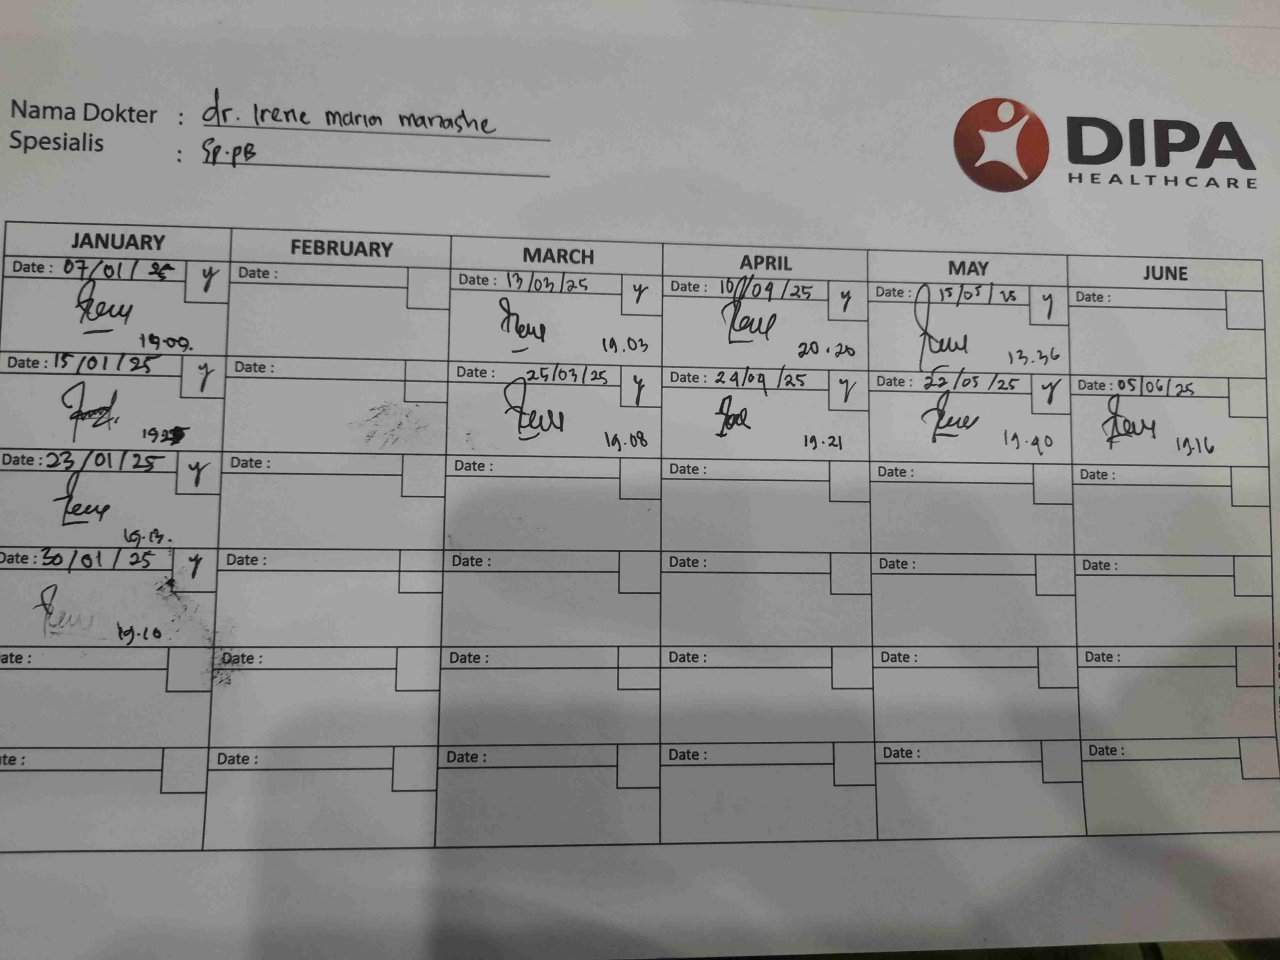 Nama Dokter : dr. Irene maria manashe
Spesialis : Sp.PB
DIPA
HEALTHCARE
JANUARY FEBRUARY MARCH APRIL MAY JUNE
Date : 07/01/25 y Date : Date : 13/03/25 y Date : 10/04/25 y Date : 15/05/25 y Date :
19.09. 19.03 20.20 13.36
Date : 15/01/25 y Date : Date : 25/03/25 y Date : 24/04/25 y Date : 22/05/25 y Date : 05/06/25
19.08 19.21 19.40 19.16
Date : 23/01/25 y Date : Date : Date : Date : Date :
19.13.
Date : 30/01/25 y Date : Date : Date : Date : Date :
19.10
ate : Date : Date : Date : Date : Date :
te : Date : Date : Date : Date : Date :